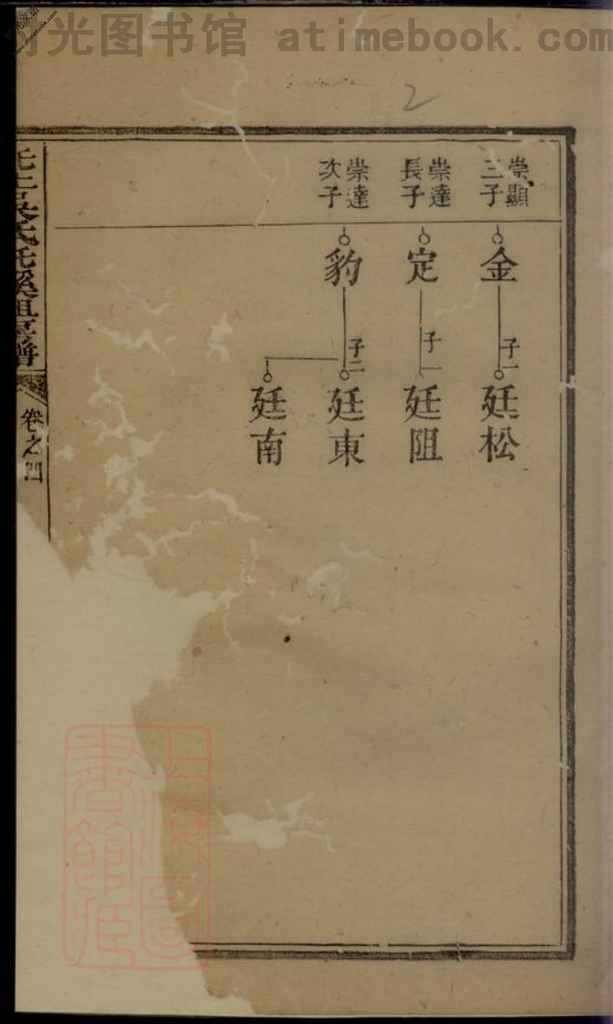 时光图书馆 atimebook.com
2
崇顯
三子
金
子一
廷松
崇達
長子
定
子一
廷阻
崇達
次子
豹
子二
廷東
廷南
卷之四